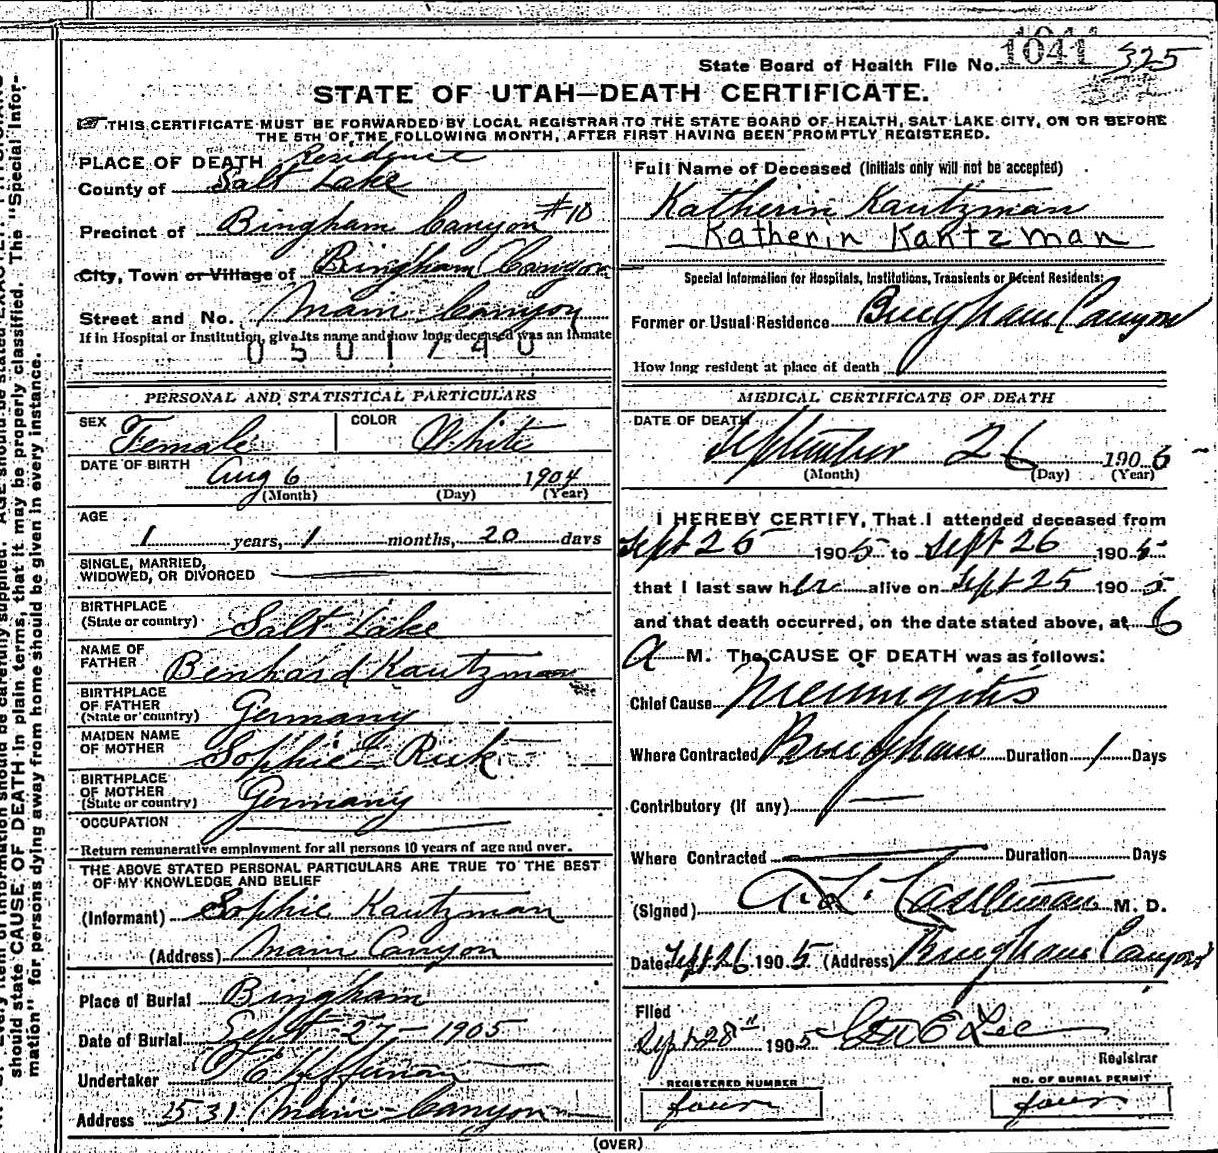 1041 325
State Board of Health File No.
STATE OF UTAH—DEATH CERTIFICATE.
THIS CERTIFICATE MUST BE FORWARDED BY LOCAL REGISTRAR TO THE STATE BOARD OF HEALTH, SALT LAKE CITY, ON OR BEFORE
THE 5TH OF THE FOLLOWING MONTH, AFTER FIRST HAVING BEEN PROMPTLY REGISTERED.
PLACE OF DEATH Residence
County of Salt Lake
Precinct of Bingham Canyon #10
City, Town or Village of Bingham Canyon
Street and No. Main Canyon
If in Hospital or Institution, give its name and how long deceased was an inmate
0501740
PERSONAL AND STATISTICAL PARTICULARS
SEX Female COLOR White
DATE OF BIRTH Aug 6 1904
(Month) (Day) (Year)
AGE
1 years, 1 months, 20 days
SINGLE, MARRIED,
WIDOWED, OR DIVORCED
BIRTHPLACE
(State or country) Salt Lake
NAME OF
FATHER Benhard Kautzman
BIRTHPLACE
OF FATHER
(State or country) Germany
MAIDEN NAME
OF MOTHER Sophie Ruk
BIRTHPLACE
OF MOTHER
(State or country) Germany
OCCUPATION
Return remunerative employment for all persons 10 years of age and over.
THE ABOVE STATED PERSONAL PARTICULARS ARE TRUE TO THE BEST
OF MY KNOWLEDGE AND BELIEF
(Informant) Sophie Kautzman
(Address) Main Canyon
Place of Burial Bingham
Date of Burial Sept-27-1905
Undertaker Heffernan
Address 2531 Main Canyon
Full Name of Deceased (Initials only will not be accepted)
Katherin Kautzman
Katherin Kantzman
Special Information for Hospitals, Institutions, Transients or Recent Residents:
Former or Usual Residence Bingham Canyon
How long resident at place of death
MEDICAL CERTIFICATE OF DEATH
DATE OF DEATH
September 26 1905
(Month) (Day) (Year)
I HEREBY CERTIFY, That I attended deceased from
Sept 25 1905 to Sept 26 1905
that I last saw her alive on Sept 25 1905
and that death occurred, on the date stated above, at 6
a M. The CAUSE OF DEATH was as follows:
Chief Cause Meningitis
Where Contracted Bingham Duration 1 Days
Contributory (if any)
Where Contracted Duration Days
(Signed) A. L. M. D.
Date Sept 26 1905 (Address) Bingham Canyon
Filed
Sept 28" 1905 Geo E Lee
Registrar
REGISTERED NUMBER NO. OF BURIAL PERMIT
four four
(OVER)
should state CAUSE OF DEATH in plain terms, that it may be properly classified. The "Special Infor-
mation" for persons dying away from home should be given in every instance.